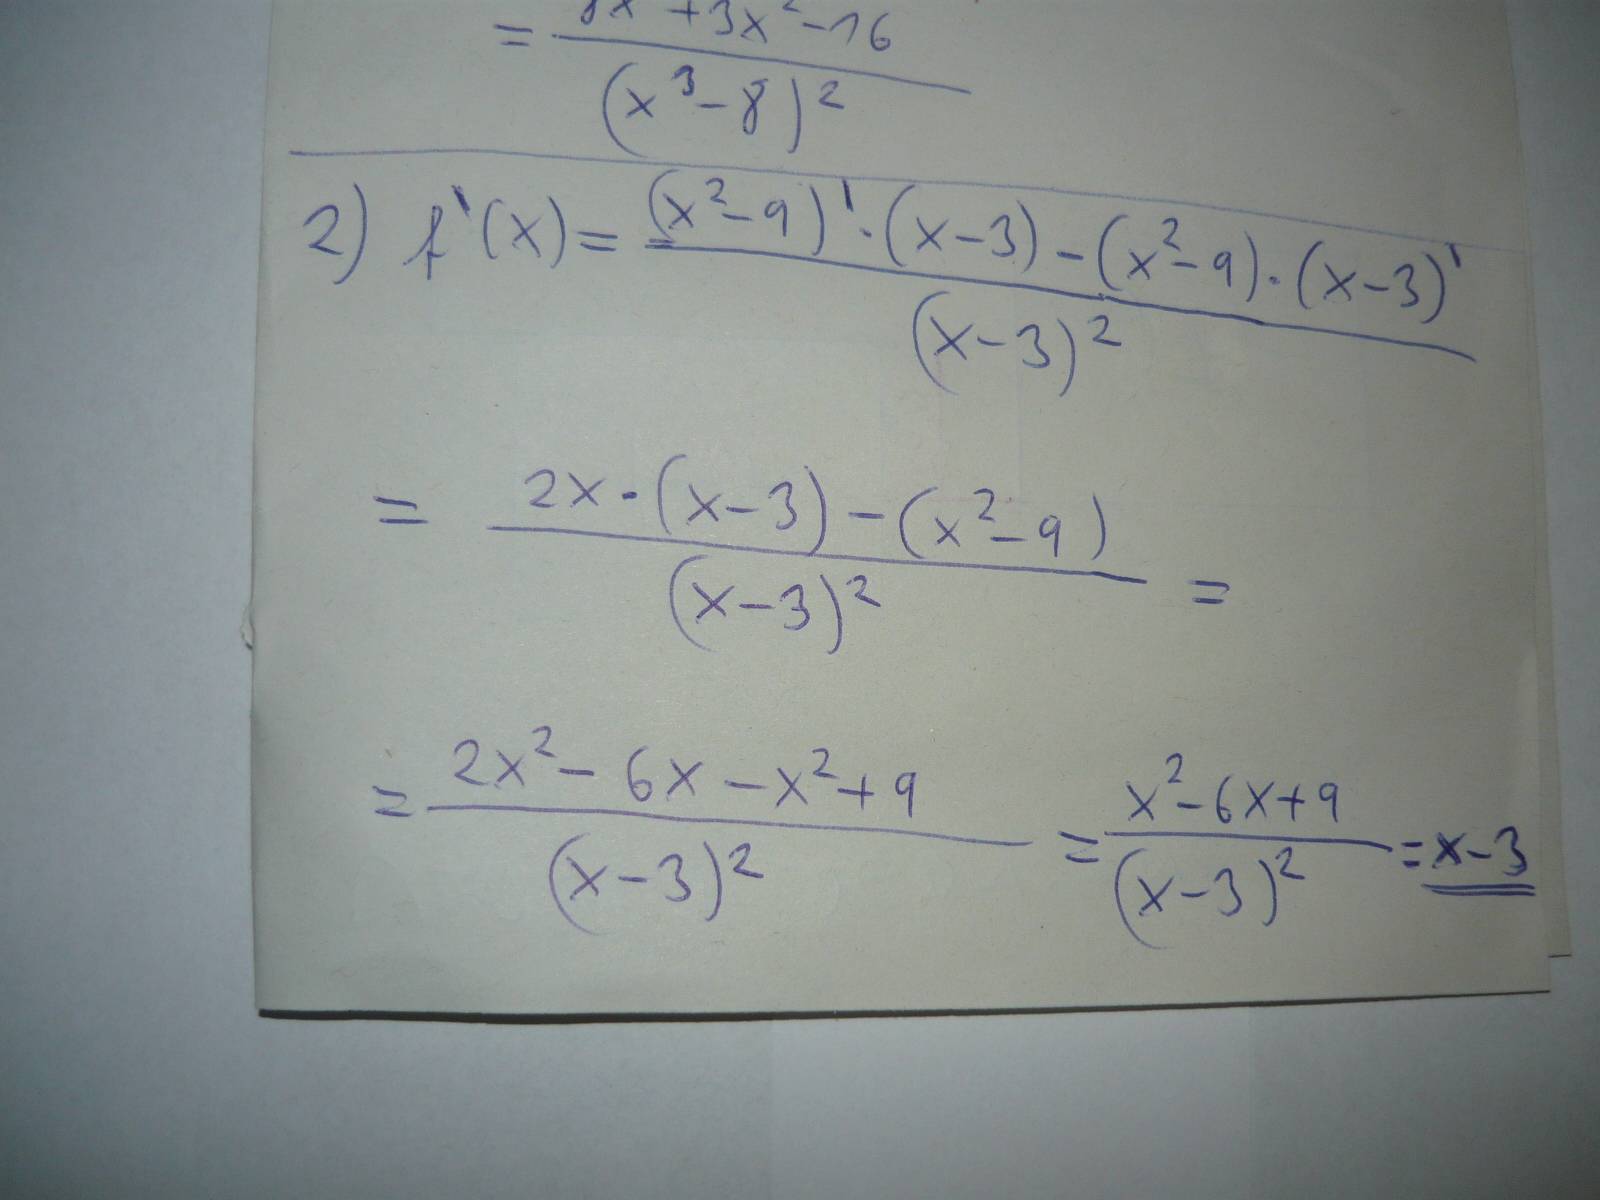 +3x²-16
=
(x³-8)²
2) f'(x)= (x²-9)'·(x-3)-(x²-9)·(x-3)'
(x-3)²
= 2x·(x-3)-(x²-9)
(x-3)² =
= 2x²-6x-x²+9 = x²-6x+9 = x-3
(x-3)² (x-3)²